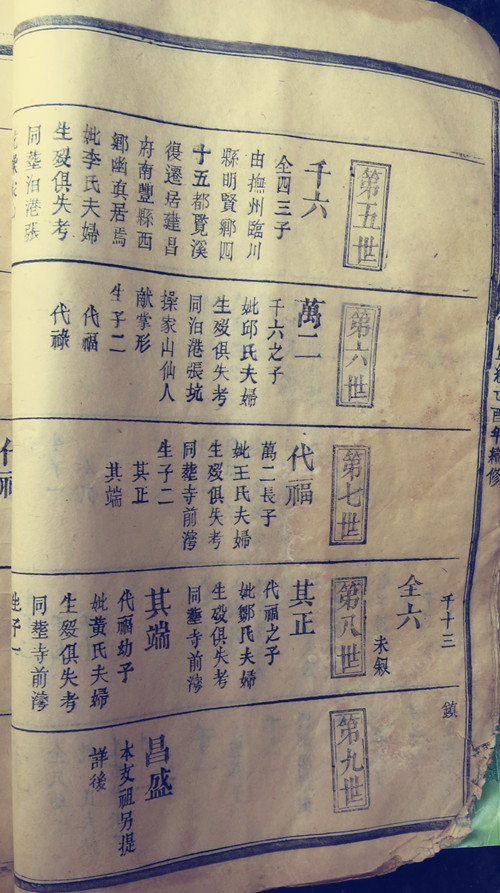 酉年
第五世
千六
全四三子
由撫州臨川
縣明賢鄉四
十五都覽溪
復遷居建昌
府南豐縣西
鄉幽真居焉
妣李氏夫婦
生歿俱失考
同塟泊港張
第六世
萬二
千六之子
妣邱氏夫婦
生歿俱失考
同泊港張坑
操家山仙人
献掌形
生子二
代福
代祿
第七世
代福
萬二長子
妣王氏夫婦
生歿俱失考
同塟寺前灣
生子二
其正
其端
千十三
全六
未叙
第八世
其正
代福之子
妣鄒氏夫婦
生歿俱失考
同塟寺前灣
其端
代福幼子
妣黄氏夫婦
生歿俱失考
同塟寺前灣
生子一
鎮
第九世
昌盛
本支祖另提
詳後
代福